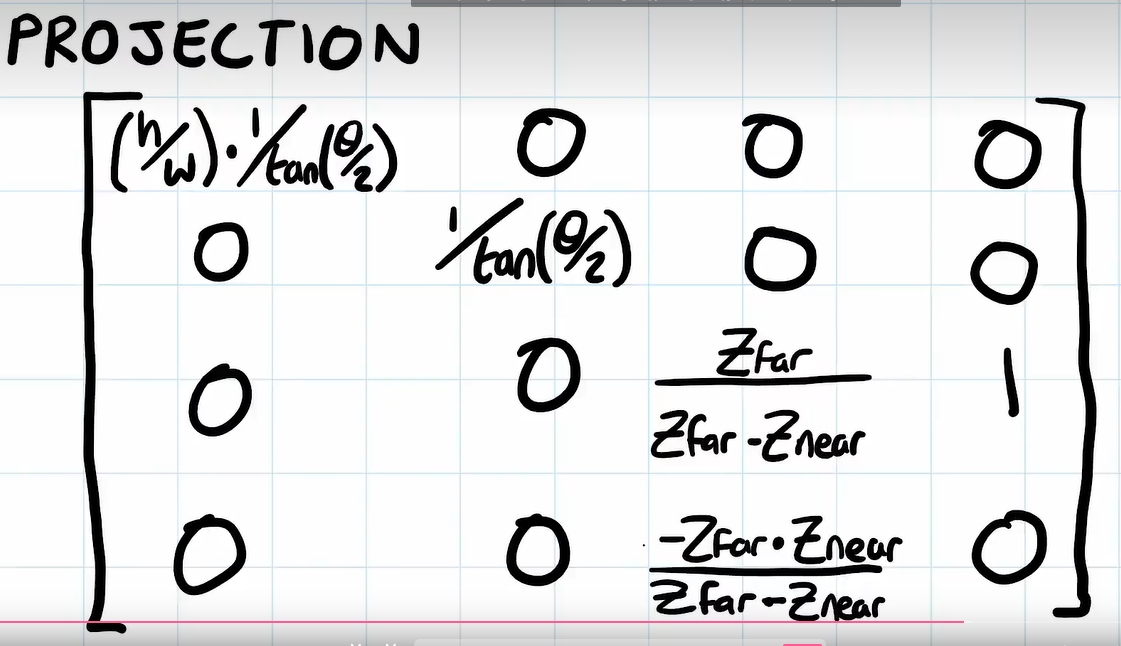 PROJECTION
(h/w)·1/tan(θ/2) 0 0 0
0 1/tan(θ/2) 0 0
0 0 Zfar / Zfar-Znear 1
0 0 -Zfar·Znear / Zfar-Znear 0